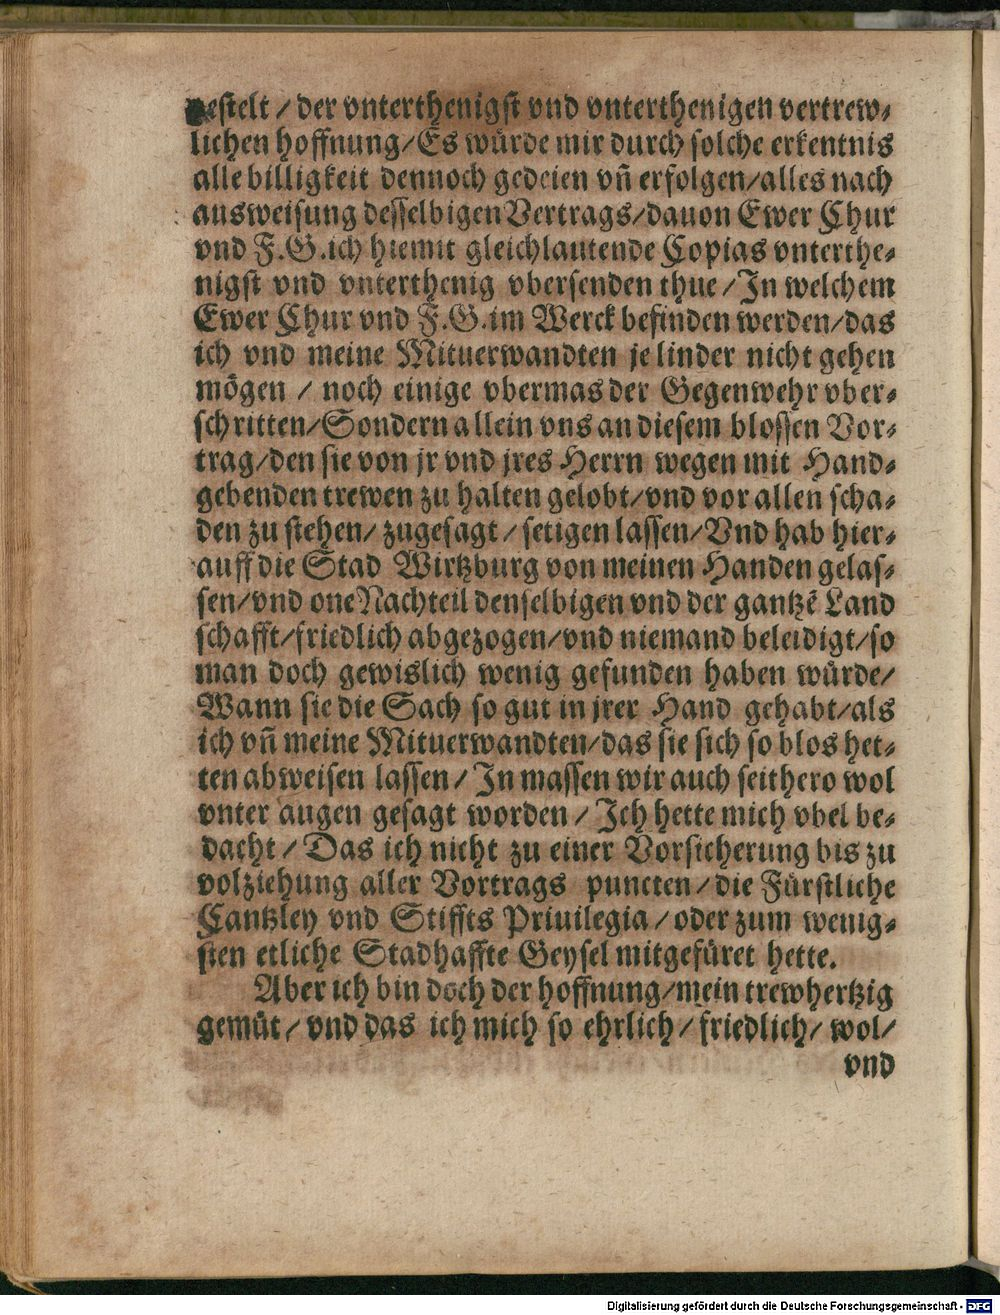 gestelt / der vnterthenigst vnd vnterthenigen vertrew⸗
lichen hoffnung/Es würde mir durch solche erkentnis
alle billigkeit dennoch gedeien vñ erfolgen/alles nach
ausweisung desselbigen Vertrags/dauon Ewer Chur
vnd F.G.ich hiemit gleichlautende Copias vnterthe⸗
nigst vnd vnterthenig vbersenden thue/In welchem
Ewer Chur vnd F.G.im Werck befinden werden/das
ich vnd meine Mituerwandten je linder nicht gehen
mögen / noch einige vbermas der Gegenwehr vber⸗
schritten/Sondern allein vns an diesem blossen Vor⸗
trag/den sie von jr vnd jres Herrn wegen mit Hand⸗
gebenden trewen zu halten gelobt/vnd vor allen scha⸗
den zu stehen/ zugesagt / setigen lassen/Vnd hab hier⸗
auff die Stad Wirtzburg von meinen Handen gelas⸗
sen/vnd one Nachteil denselbigen vnd der gantzẽ Land
schafft/friedlich abgezogen/vnd niemand beleidigt/so
man doch gewislich wenig gefunden haben würde/
Wann sie die Sach so gut in jrer Hand gehabt/als
ich vñ meine Mituerwandten/das sie sich so blos het⸗
ten abweisen lassen / In massen wir auch seithero wol
vnter augen gesagt worden / Ich hette mich vbel be⸗
dacht / Das ich nicht zu einer Vorsicherung bis zu
volziehung aller Vortrags puncten/die Fürstliche
Cantzley vnd Stiffts Priuilegia/oder zum wenig⸗
sten etliche Stadhaffte Geysel mitgefüret hette.
Aber ich bin doch der hoffnung/mein trewhertzig
gemüt/ vnd das ich mich so ehrlich/friedlich/ wol/
vnd
Digitalisierung gefördert durch die Deutsche Forschungsgemeinschaft - DFG